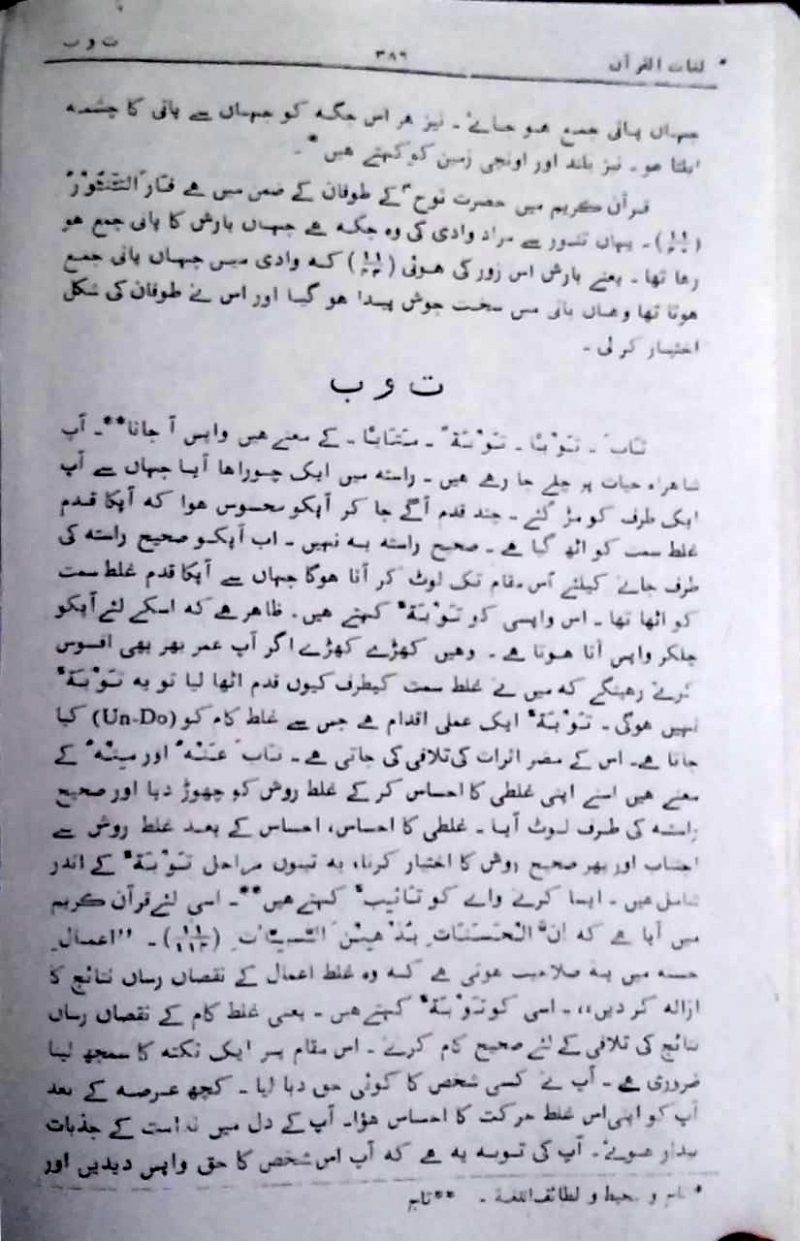 لغات القرآن ۳۸۶ ت و ب
جہاں پانی جمع ہو جائے ۔ نیز ہر اس جگہ کو جہاں سے پانی کا چشمہ
ابلتا ہو ۔ نیز بلند اور اونچی زمین کو کہتے ہیں * ۔
قرآن کریم میں حضرت نوحؑ کے طوفان کے ضمن میں ہے فَارَ التَّنُّوْرُ
(۱۱/۴۰) ۔ یہاں تنور سے مراد وادی کی وہ جگہ ہے جہاں بارش کا پانی جمع ہو
رہا تھا ۔ یعنے بارش اس زور کی ہوئی (۱۱/۴۴) کہ وادی میں جہاں پانی جمع
ہوتا تھا وہاں پانی میں سخت جوش پیدا ہو گیا اور اس نے طوفان کی شکل
اختیار کر لی ۔
ت و ب
تَابَ ۔ تَوْبًا ۔ تَوْبَةً ۔ مَتَابًا ۔ کے معنے ہیں واپس آ جانا** ۔ آپ
شاہراہ حیات پر چلے جا رہے ہیں ۔ راستہ میں ایک چوراہا آیا جہاں سے آپ
ایک طرف کو مڑ گئے ۔ چند قدم آگے جا کر آپکو محسوس ہوا کہ آپکا قدم
غلط سمت کو اٹھ گیا ہے ۔ صحیح راستہ یہ نہیں ۔ اب آپکو صحیح راستہ کی
طرف جانے کیلئے اُس مقام تک لوٹ کر آنا ہوگا جہاں سے آپکا قدم غلط سمت
کو اٹھا تھا ۔ اس واپسی کو تَوْبَةٌ کہتے ہیں ۔ ظاہر ہے کہ اسکے لئے آپکو
چلکر واپس آنا ہوتا ہے ۔ وہیں کھڑے کھڑے اگر آپ عمر بھر بھی افسوس
کرتے رہینگے کہ میں نے غلط سمت کیطرف کیوں قدم اٹھا لیا تو یہ تَوْبَةٌ
نہیں ہوگی ۔ تَوْبَةٌ ایک عملی اقدام ہے جس سے غلط کام کو (Un-Do) کیا
جاتا ہے۔ اس کے مضر اثرات کی تلافی کی جاتی ہے ۔ تَابَ عَنْهُ اور مِنْهُ کے
معنے ہیں اسنے اپنی غلطی کا احساس کر کے غلط روش کو چھوڑ دیا اور صحیح
راستہ کی طرف لوٹ آیا ۔ غلطی کا احساس، احساس کے بعد غلط روش سے
اجتناب اور پھر صحیح روش کا اختیار کرنا، یہ تینوں مراحل تَوْبَةٌ کے اندر
شامل ہیں ۔ ایسا کرنے والے کو تَائِبٌ کہتے ہیں** ۔ اسی لئے قرآن کریم
میں آیا ہے کہ اِنَّ الْحَسَنَاتِ یُذْهِبْنَ السَّیِّئَاتِ (۱۱/۱۱۴) ۔ ’’اعمالِ
حسنہ میں یہ صلاحیت ہوتی ہے کہ وہ غلط اعمال کے نقصان رساں نتائج کا
ازالہ کر دیں،، ۔ اسی کو تَوْبَةٌ کہتے ہیں ۔ یعنی غلط کام کے نقصان رساں
نتائج کی تلافی کے لئے صحیح کام کرنے ۔ اس مقام پر ایک نکتہ کا سمجھ لینا
ضروری ہے ۔ آپ نے کسی شخص کا کوئی حق دبا لیا ۔ کچھ عرصہ کے بعد
آپ کو اپنی اس غلط حرکت کا احساس ہؤا۔ آپ کے دل میں ندامت کے جذبات
بیدار ہوئے۔ آپ کی توبہ یہ ہے کہ آپ اس شخص کا حق واپس دیدیں اور
* تاج و محیط و لطائف اللغۃ ۔ **تاج